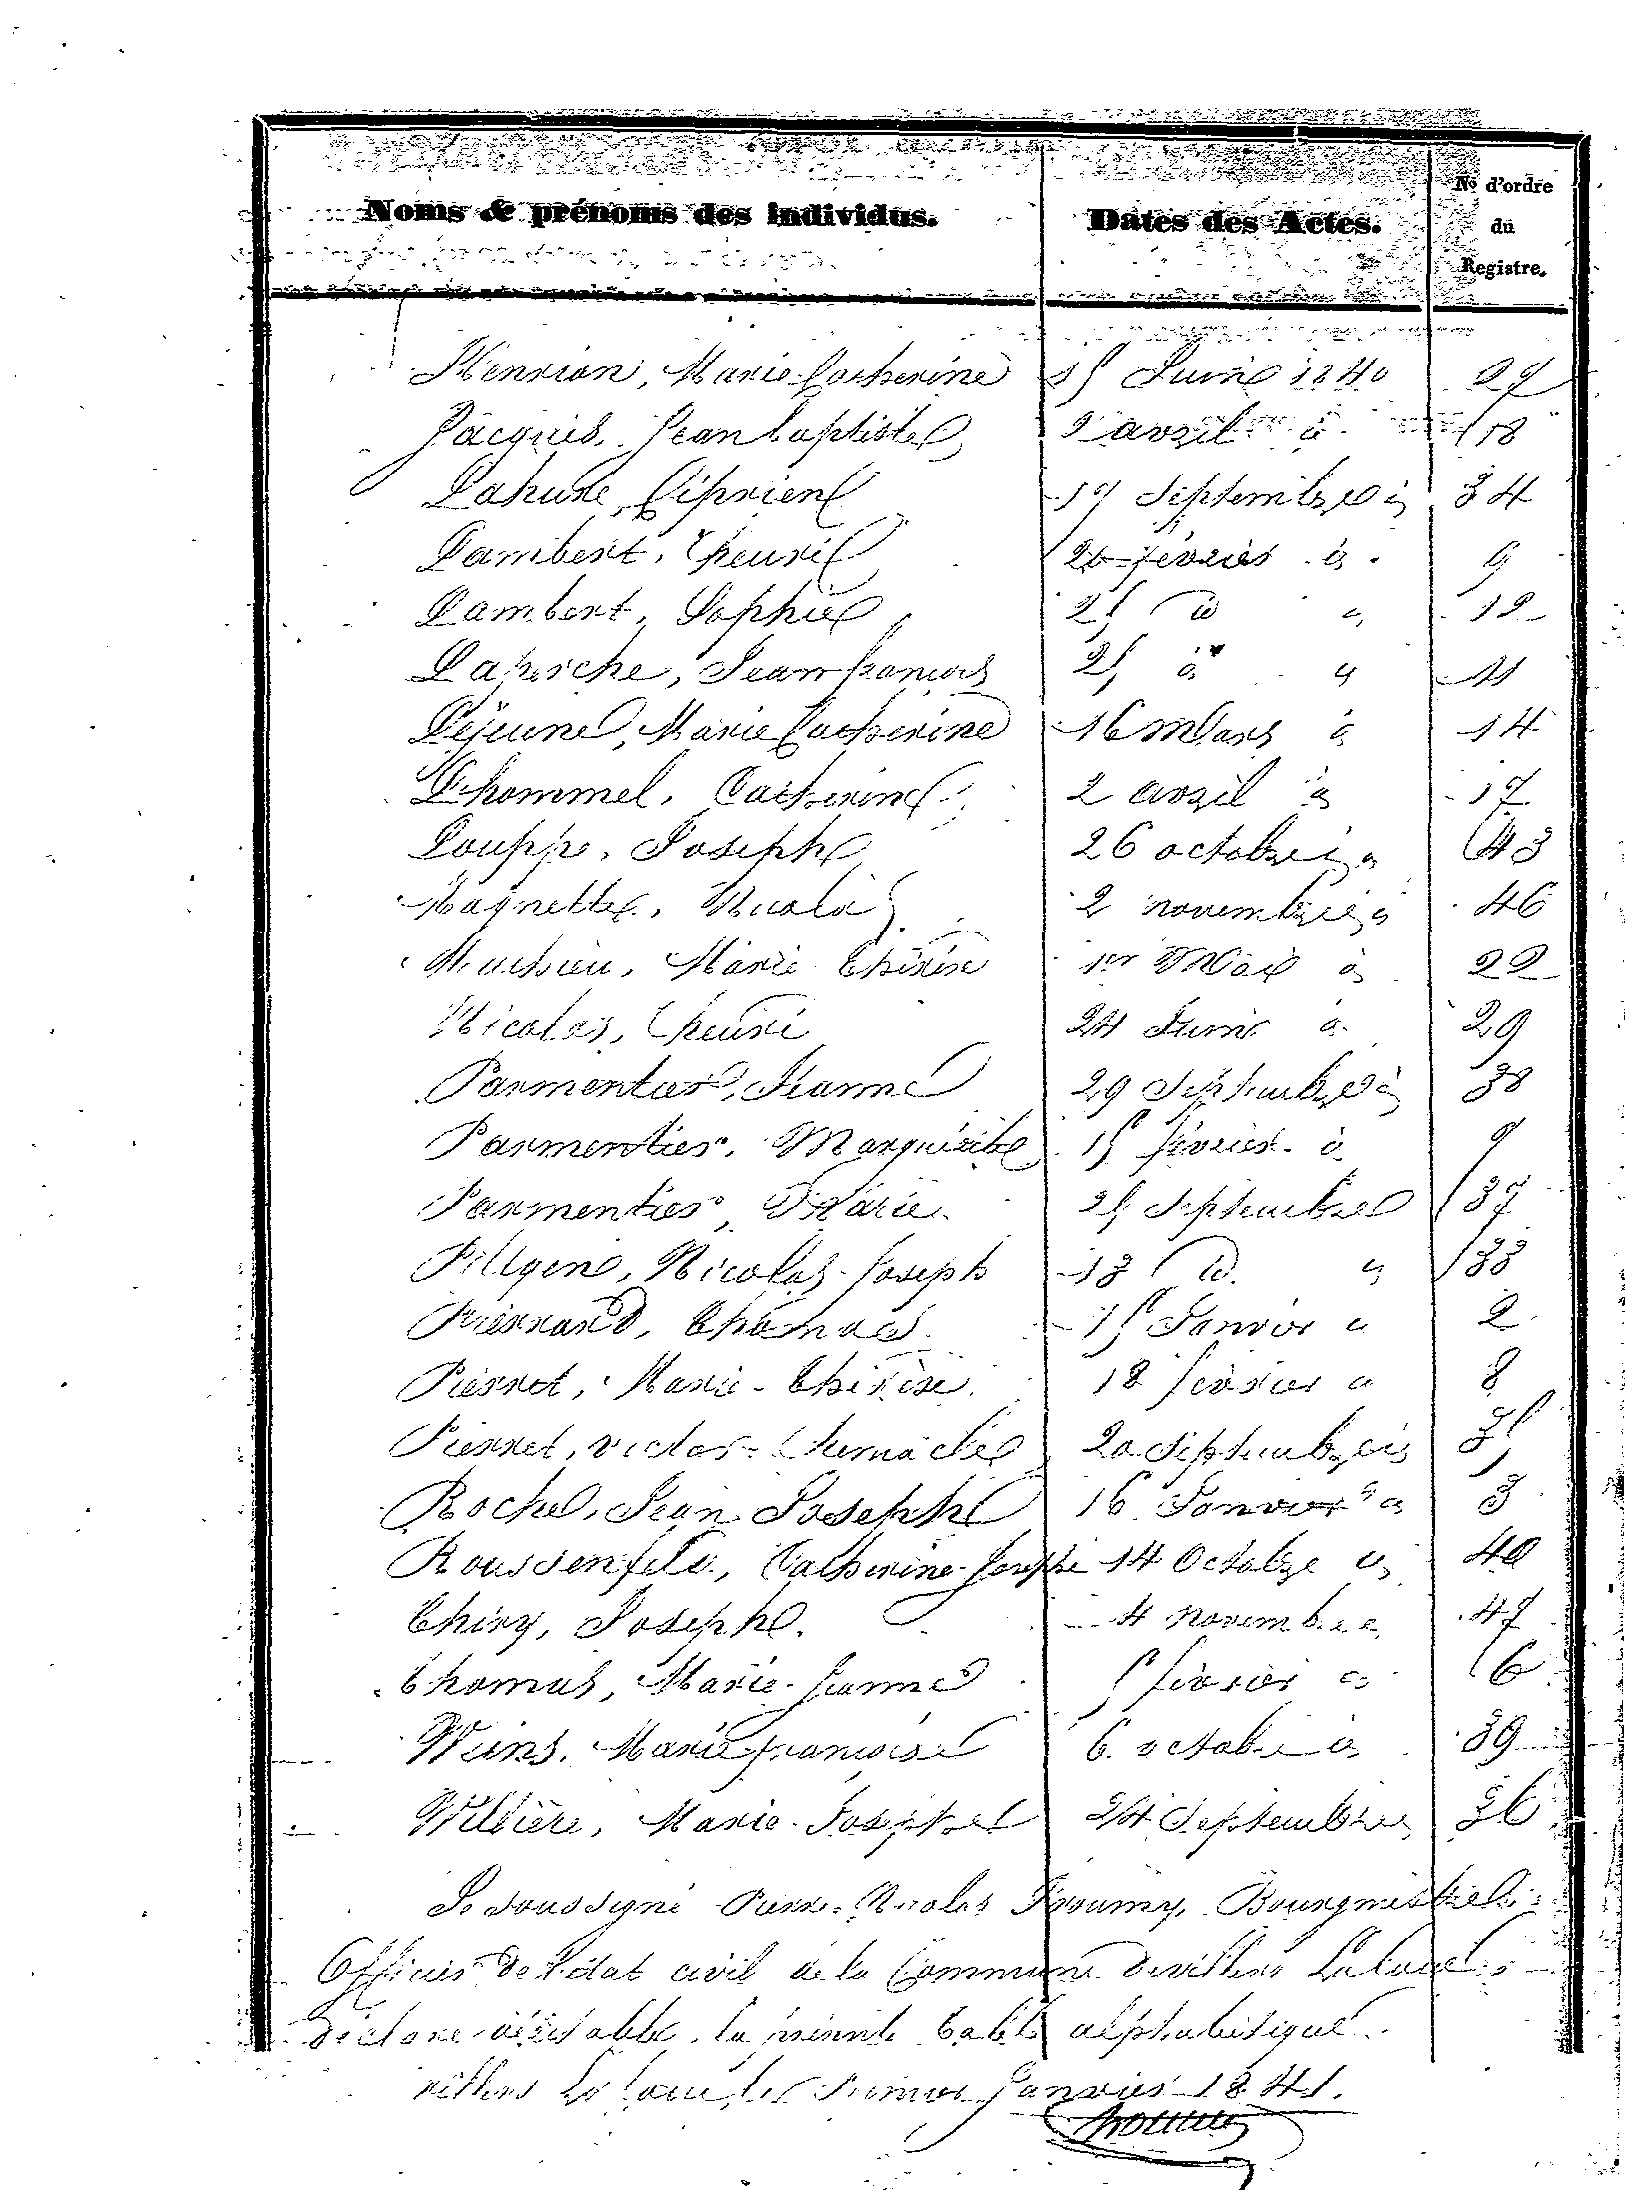 Noms & prénoms des individus. Dates des Actes. No d'ordre
du
Registre.
Henrion, Marie-Catherine 15 Juin 1840 27
Jacques, Jean baptiste 2 avril 18
Lahure, Ciprien 17 Septembre 34
Lambert, 20 février 9
Lambert, Sophie 25 12
Laherche, Jean françois 25 11
Lejeune, Marie Catherine 16 Mars 14
Lhommel, Catherine 2 avril 17
Louppe, Joseph 26 octobre 43
Magnette, Nicolas 2 novembre 46
Mathieu, Marie Thérèse 1er Mai 22
Nicolas, 24 Juin 29
Parmentier, Jeanne 29 Septembre 38
Parmentier, Marguerite 15 février 7
Parmentier, Marie 25 Septembre 37
Pillyen, Nicolas-Joseph 18 33
Pierrard, Thomas 15 Janvier 2
Pierret, Marie-Thérèse 18 février 8
Pierret, Victor- 20 Septembre 35
Roche, Jean Joseph 16 Janvier 3
Roussenfeld, Catherine-Josephe 14 Octobre 40
Thiry, Joseph 4 novembre 47
Thomas, Marie-Jeanne 5 février 6
Weins, Marie françoise 6 octobre 39
Willière, Marie-Josephe 24 Septembre 36
Le soussigné Pierre-Nicolas Bourgmestre
Officier de l'état civil de la Commune de Villers La loue
déclare véritable la présente table alphabétique
Villers La loue, le Premier Janvier 1841.